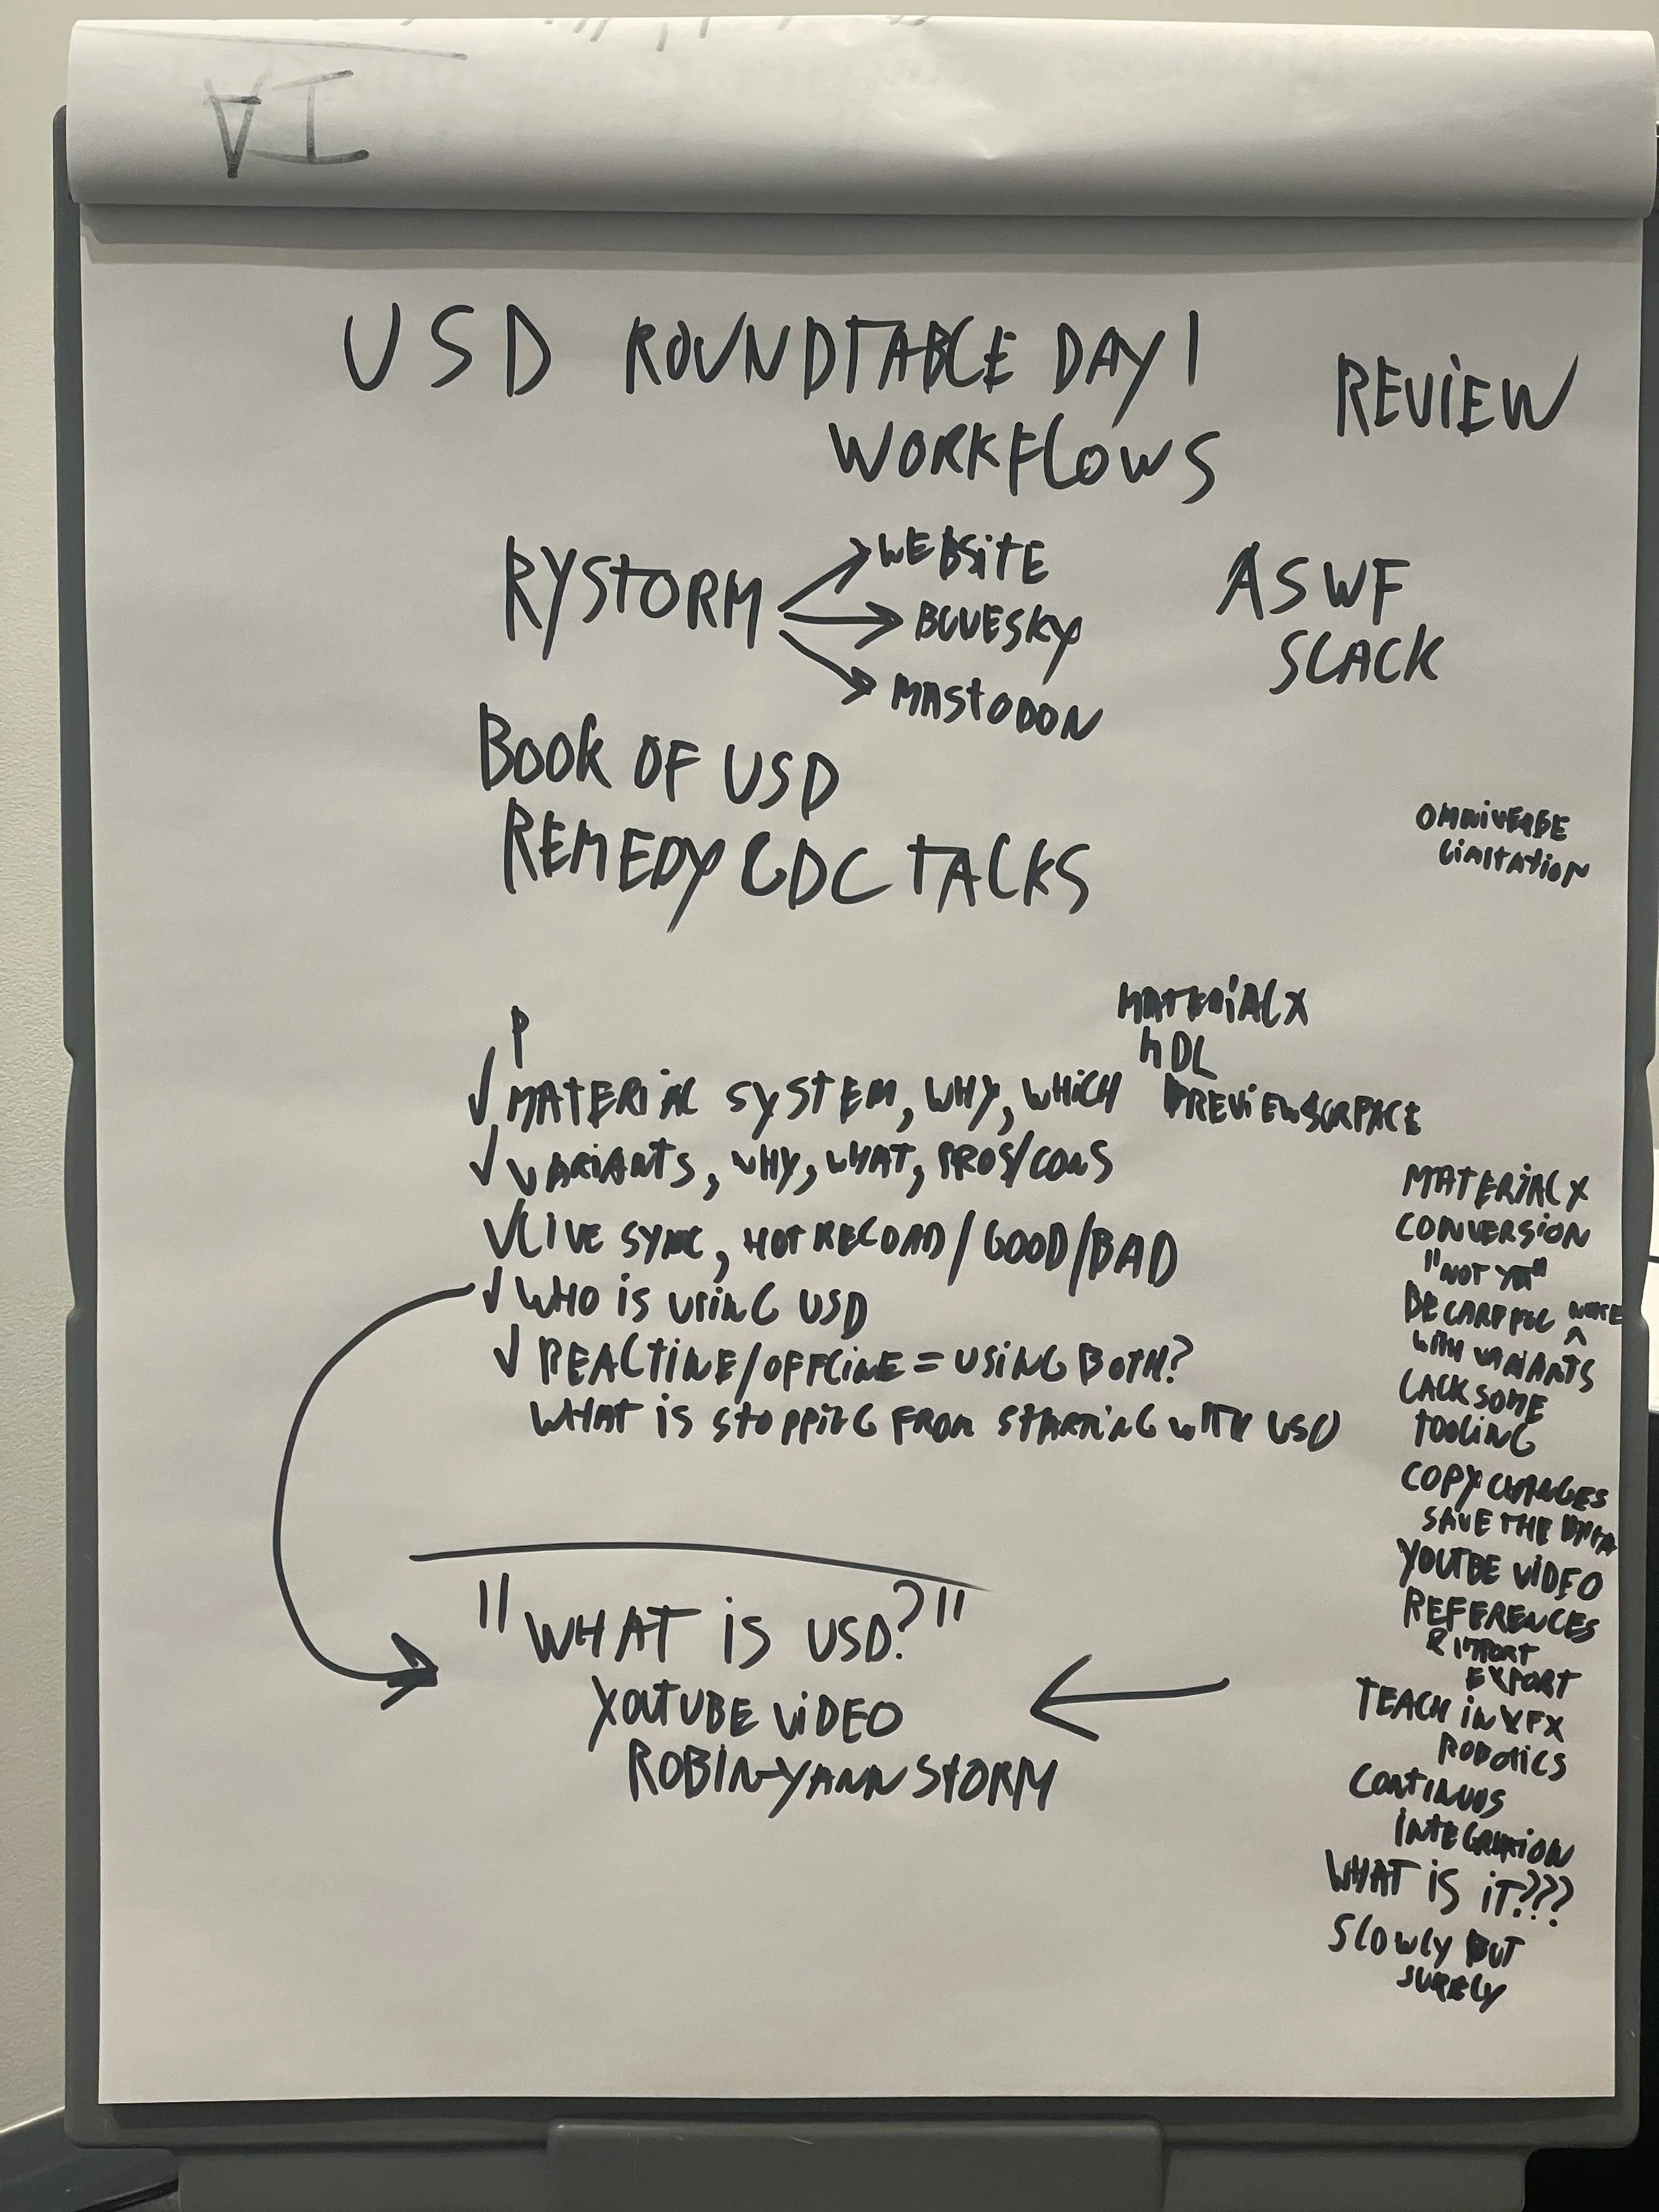 USD ROUNDTABLE DAY 1
WORKFLOWS
REVIEW
RYSTORM
WEBSITE
BLUESKY
MASTODON
ASWF
SLACK
BOOK OF USD
REMEDY GDC TALKS
OMNIVERSE
LIMITATION
P
MATERIALX
MDL
PREVIEWSURFACE
✓ MATERIAL SYSTEM, WHY, WHICH
✓ VARIANTS, WHY, WHAT, PROS/CONS
✓ LIVE SYNC, HOT RELOAD/GOOD/BAD
✓ WHO IS USING USD
✓ REALTIME/OFFLINE = USING BOTH?
WHAT IS STOPPING FROM STARTING WITH USD
"WHAT IS USD?"
YOUTUBE VIDEO
ROBIN-YANN STORM
MATERIALX
CONVERSION
"NOT YET"
BE CAREFUL
WITH VARIANTS
LACK SOME
TOOLING
COPY CHANGES
SAVE THE DATA
YOUTBE VIDEO
REFERENCES
& IMPORT
EXPORT
TEACH IN VFX
ROBOTICS
CONTINUOS
INTEGRATION
WHAT IS IT???
SLOWLY BUT
SURELY